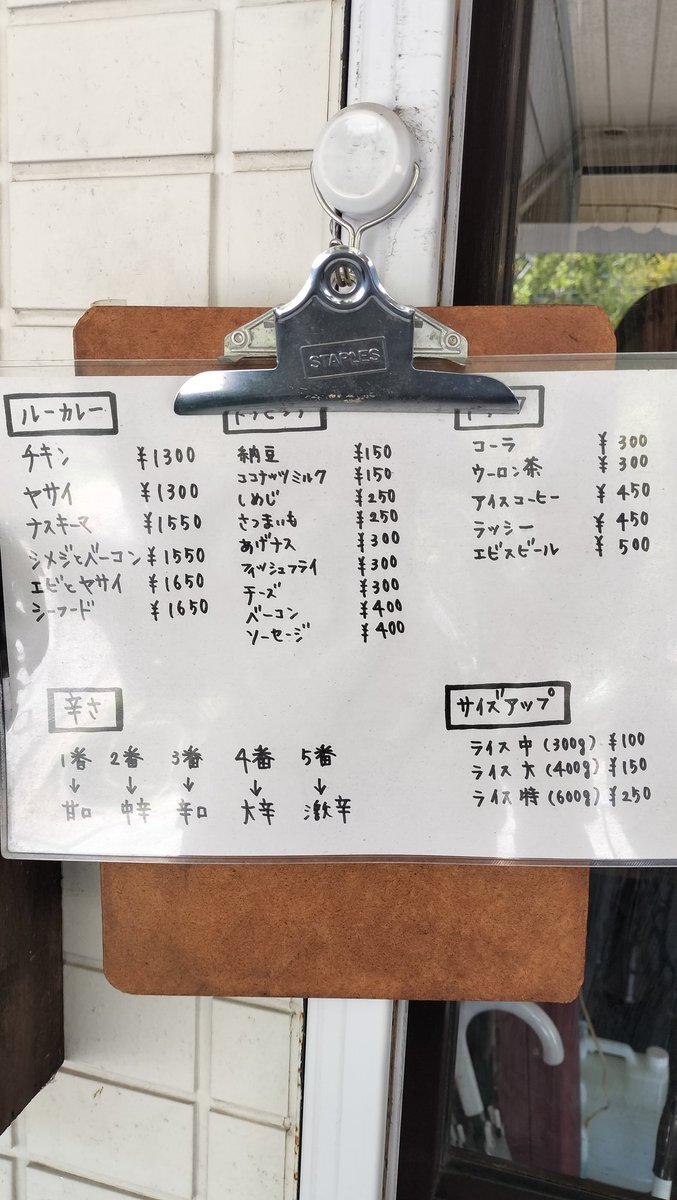 STAPLES
ルーカレー
チキン ¥1300
ヤサイ ¥1300
ナスキーマ ¥1550
シメジとベーコン ¥1550
エビとヤサイ ¥1650
シーフード ¥1650
トッピング
納豆 ¥150
ココナッツミルク ¥150
しめじ ¥250
さつまいも ¥250
あげナス ¥300
フィッシュフライ ¥300
チーズ ¥300
ベーコン ¥400
ソーセージ ¥400
コーラ ¥300
ウーロン茶 ¥300
アイスコーヒー ¥450
ラッシー ¥450
エビスビール ¥500
辛さ
1番 2番 3番 4番 5番
↓ ↓ ↓ ↓ ↓
甘口 中辛 辛口 大辛 激辛
サイズアップ
ライス 中 (300g) ¥100
ライス 大 (400g) ¥150
ライス 特 (600g) ¥250